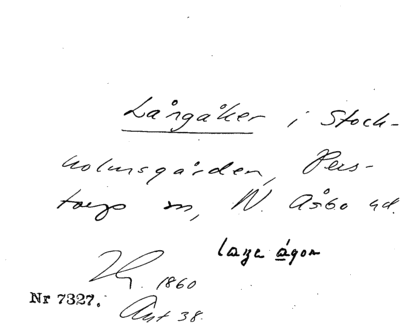 Långåker i Stock-
holmsgården, Pers-
torps sn, N. Åsbo hd.
1860
Nr 7327.
Ant 38.